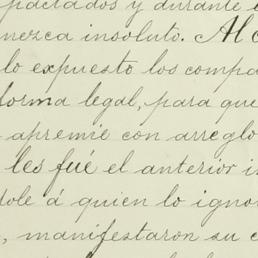 pactados y durante e
nezca insoluto. Al c
lo expuesto los compa
forma legal, para que
apremie con arreglo
les fué el anterior i
dole á quien lo igno
, manifestaron su c